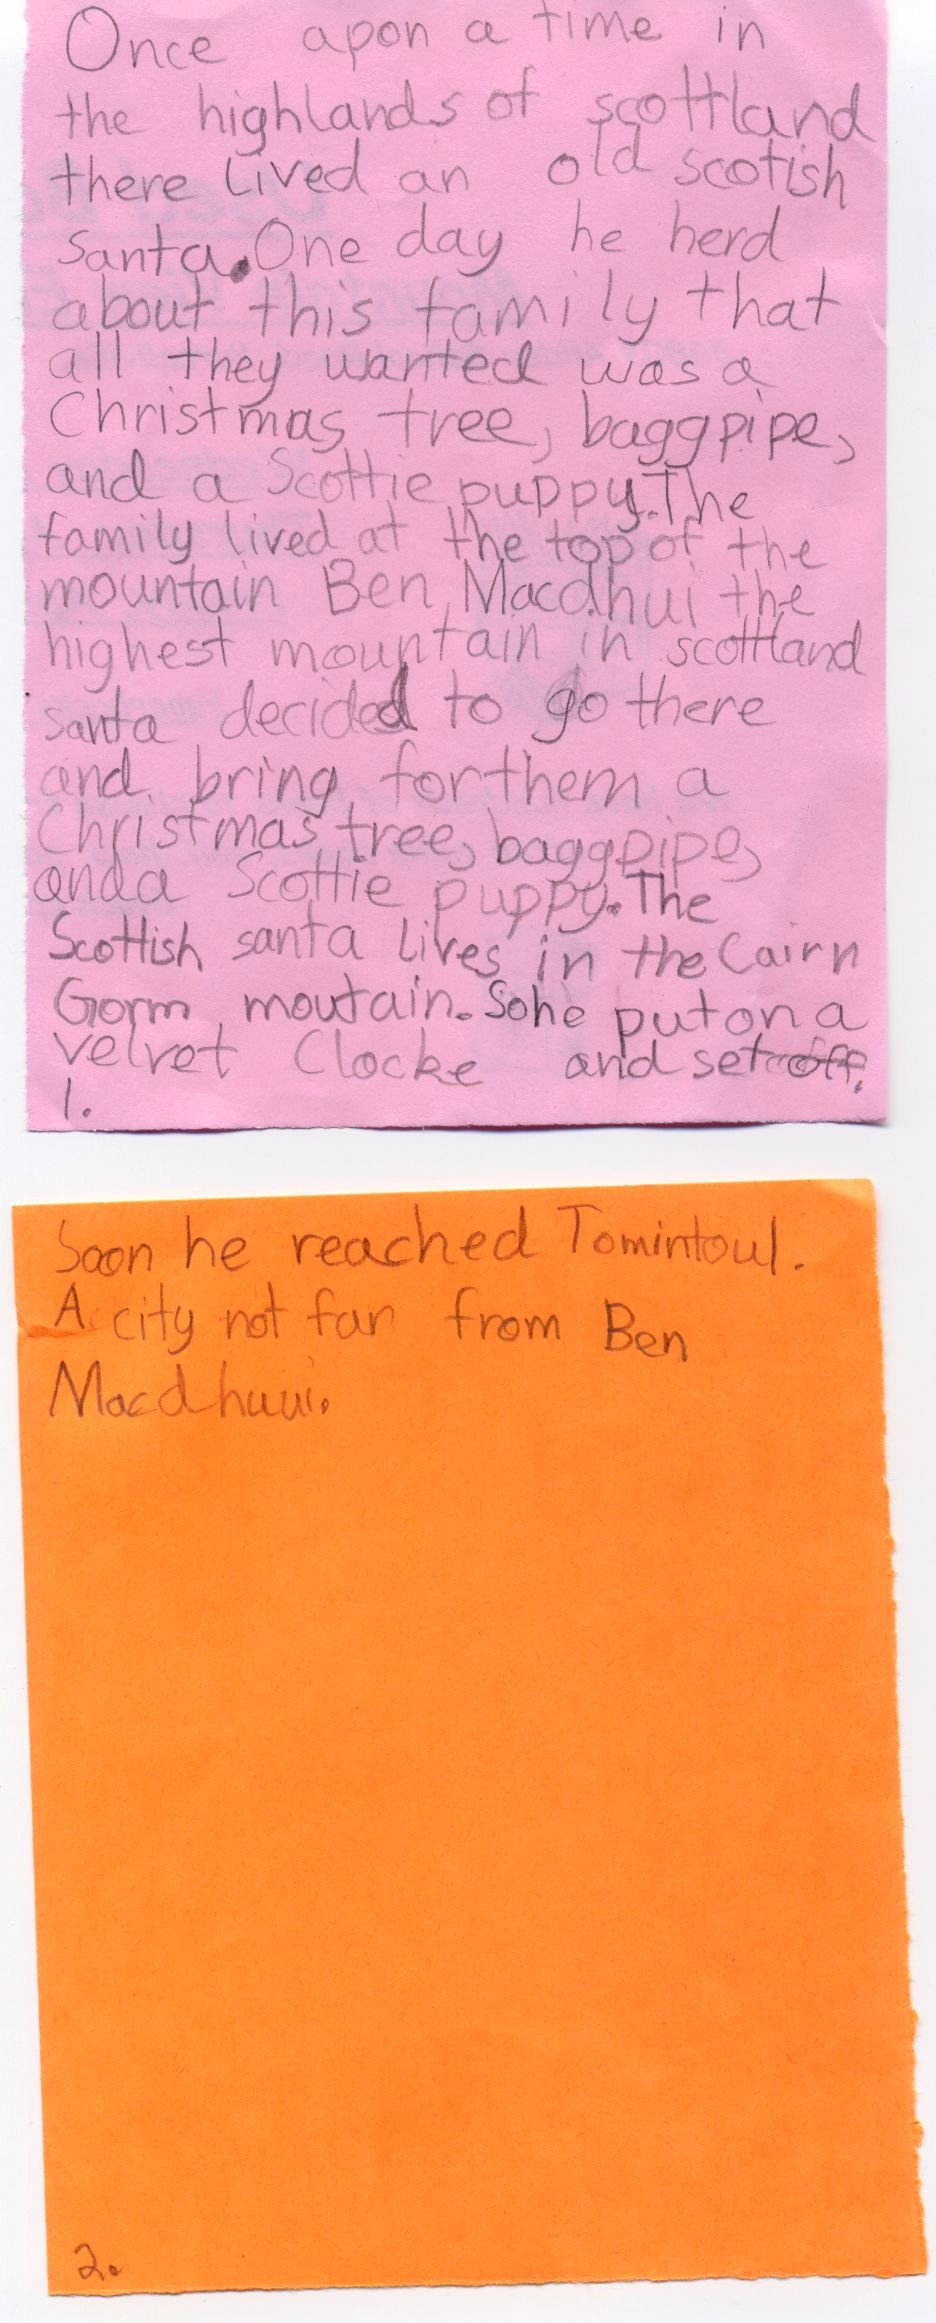 Once apon a time in
the highlands of scottland
there lived an old scotish
santa. One day he herd
about this family that
all they wanted was a
Christmas tree, baggpipe,
and a Scottie puppy. The
family lived at the top of the
mountain Ben Macdhui the
highest mountain in scottland
santa decided to go there
and bring for them a
Christmas tree, baggpipe,
and a Scottie puppy. The
Scottish santa lives in the Cairn
Gorm moutain. So he put on a
velvet Clocke and set off.
1.
Soon he reached Tomintoul.
A city not far from Ben
Macdhuui.
2.